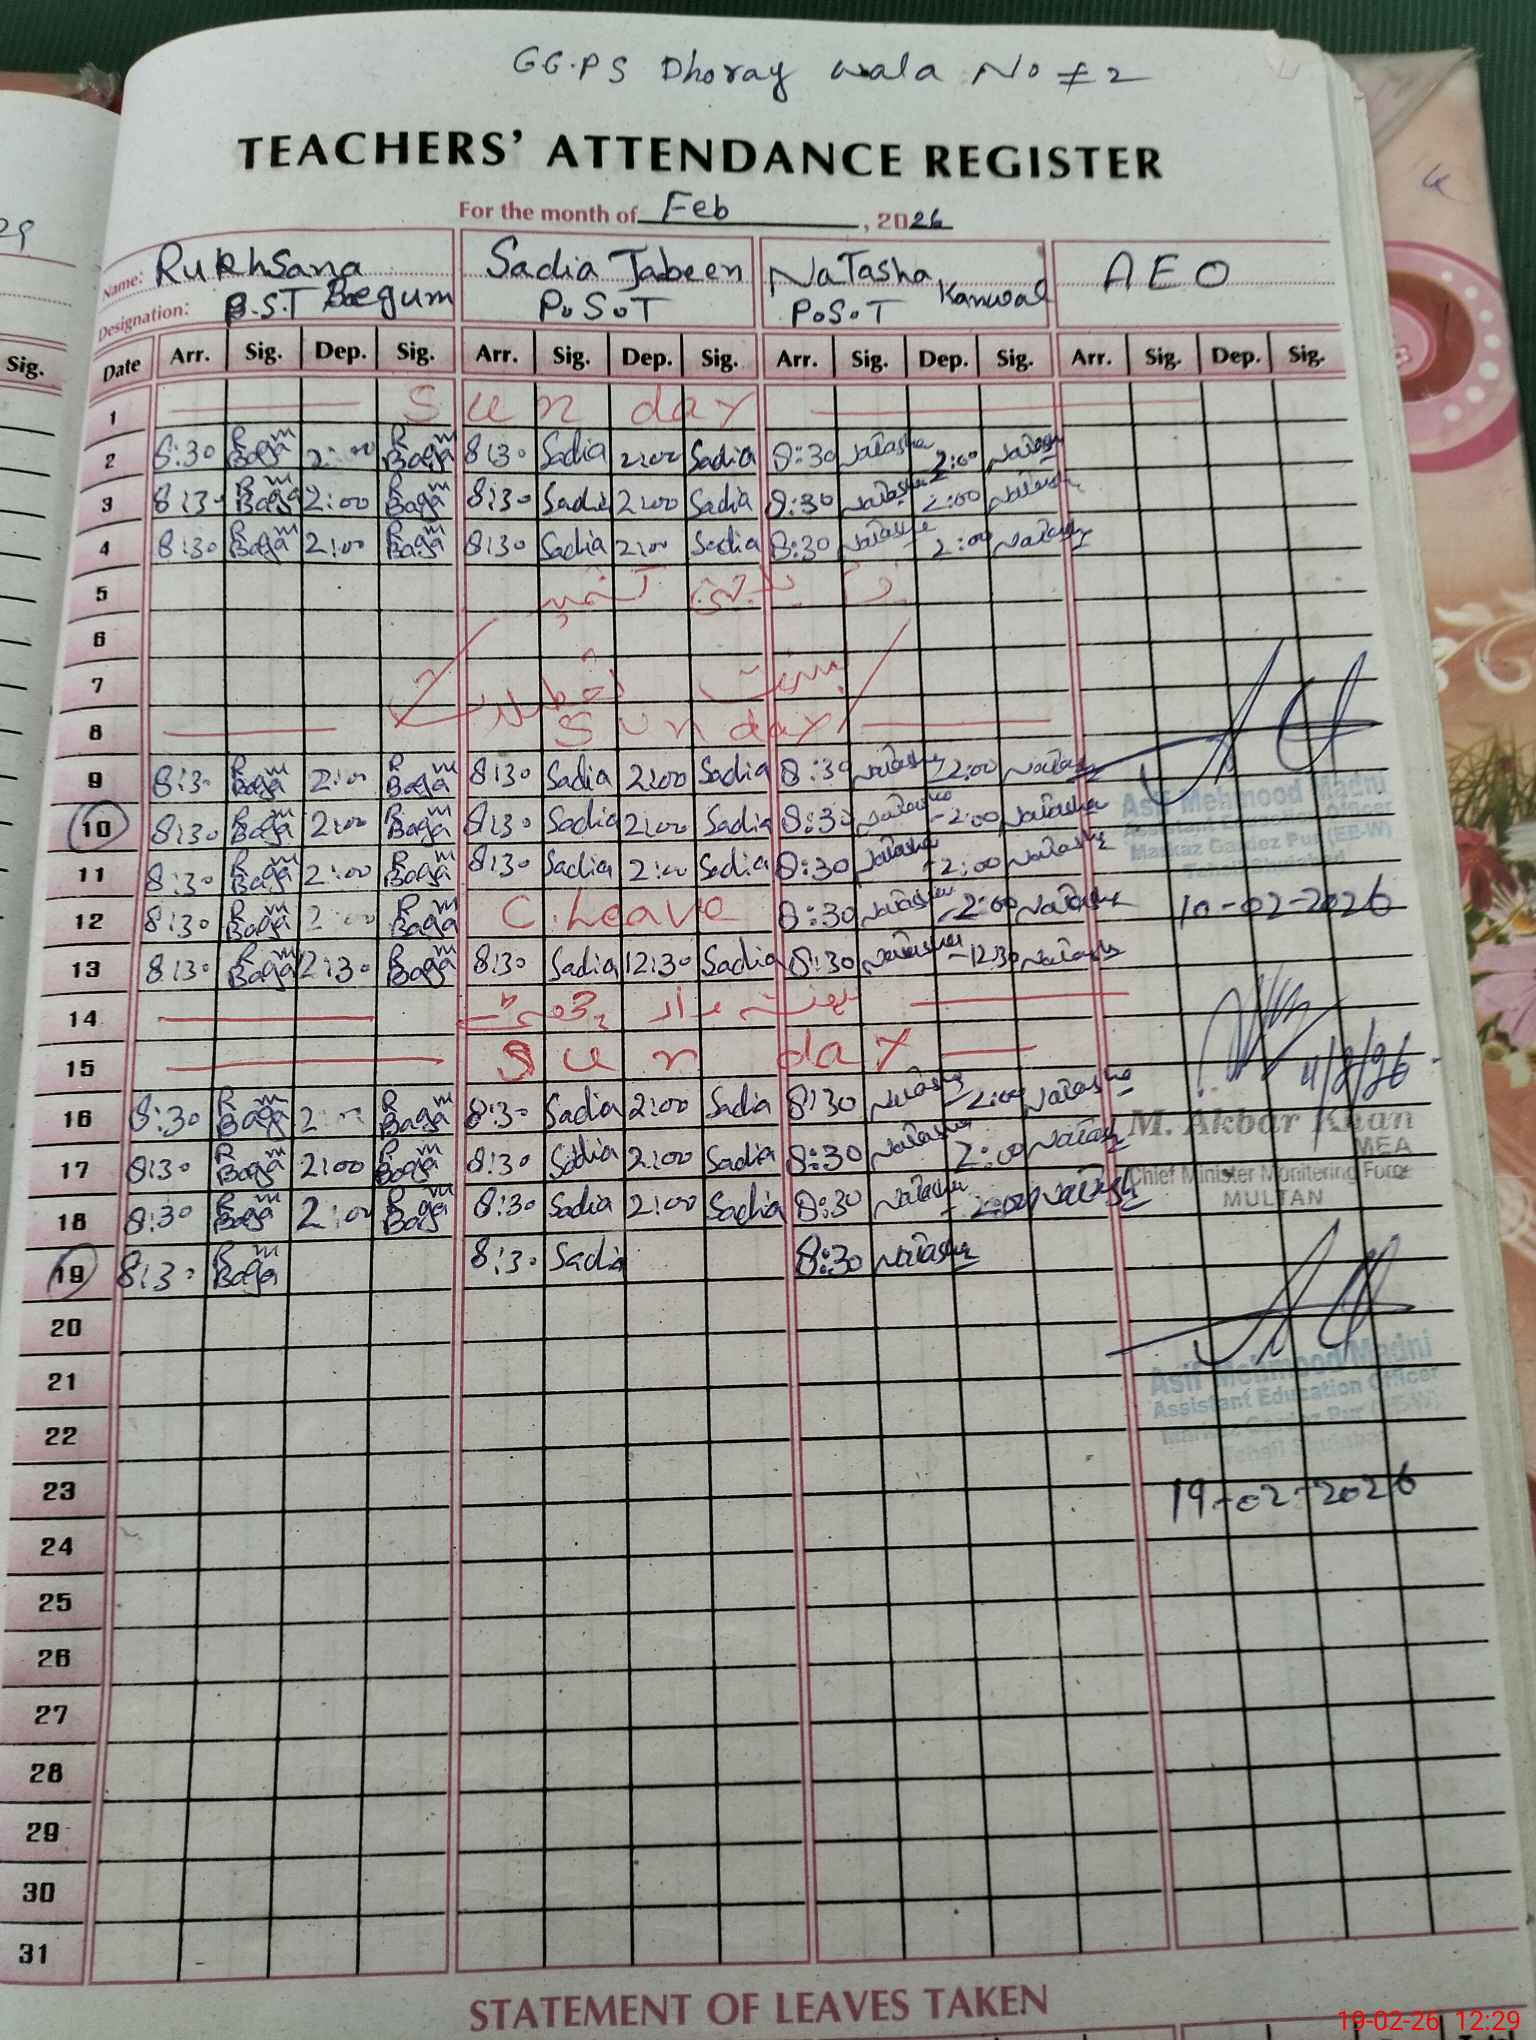 GG.PS Dhoray wala No # 2
TEACHERS' ATTENDANCE REGISTER
For the month of Feb, 2026
Name: Rukhsana Sadia Jabeen Natasha Kanwal AEO
Designation: P.S.T Begum P.S.T P.S.T
Date Arr. Sig. Dep. Sig. Arr. Sig. Dep. Sig. Arr. Sig. Dep. Sig. Arr. Sig. Dep. Sig.
Sig.
1 Sunday
2 8:30 R Baga m 2:00 R Baga m 8:30 Sadia 2:00 Sadia 8:30 Natasha 2:00 Natasha
3 8:30 R Baga m 2:00 R Baga m 8:30 Sadia 2:00 Sadia 8:30 Natasha 2:00 Natasha
4 8:30 R Baga m 2:00 R Baga m 8:30 Sadia 2:00 Sadia 8:30 Natasha 2:00 Natasha
5
6
7
8 Sunday
9 8:30 R Baga m 2:00 R Baga m 8:30 Sadia 2:00 Sadia 8:30 Natasha 2:00 Natasha
Asif Mehmood Madni
10 8:30 R Baga m 2:00 R Baga m 8:30 Sadia 2:00 Sadia 8:30 Natasha 2:00 Natasha
Assistant Education Officer
Markaz Gardez Pur (EE-W)
11 8:30 R Baga m 2:00 R Baga m 8:30 Sadia 2:00 Sadia 8:30 Natasha 2:00 Natasha
12 8:30 R Baga m 2:00 R Baga m C. Leave 8:30 Natasha 2:00 Natasha 10-02-2026
13 8:30 R Baga m 12:30 R Baga m 8:30 Sadia 12:30 Sadia 8:30 Natasha 12:30 Natasha
14
15 Sunday
16 8:30 R Baga m 2:00 R Baga m 8:30 Sadia 2:00 Sadia 8:30 Natasha 2:00 Natasha
M. Akbar Khan
MEA
17 8:30 R Baga m 2:00 R Baga m 8:30 Sadia 2:00 Sadia 8:30 Natasha 2:00 Natasha
Chief Minister Monitering Force
MULTAN
18 8:30 R Baga m 2:00 R Baga m 8:30 Sadia 2:00 Sadia 8:30 Natasha 2:00 Natasha
19 8:30 R Baga m 8:30 Sadia 8:30 Natasha
20
21
Asif Mehmood Madni
Assistant Education Officer
22
23 19-02-2026
24
25
26
27
28
29
30
31
STATEMENT OF LEAVES TAKEN
19-02-26 12:29